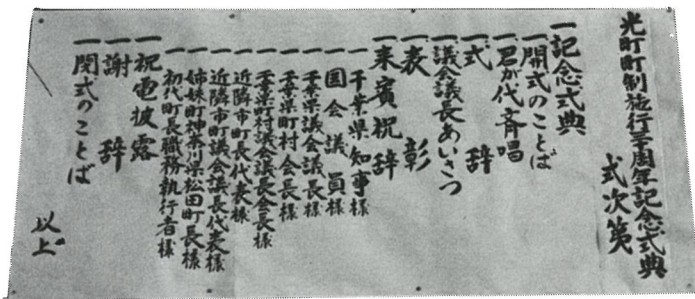 光町町制施行三十周年記念式典
式次第
一記念式典
一開式のことば
一君が代斉唱
一式辞
一議会議長あいさつ
一表彰
一来賓祝辞
一千葉県知事様
一国会議員様
一千葉県議会議長様
一千葉県町村会長様
一千葉県町村議会議長会長様
一近隣市町長代表様
一近隣市町議会議長代表様
一姉妹町神奈川県松田町長様
一初代町長職務執行者様
一祝電披露
一謝辞
一閉式のことば
以上